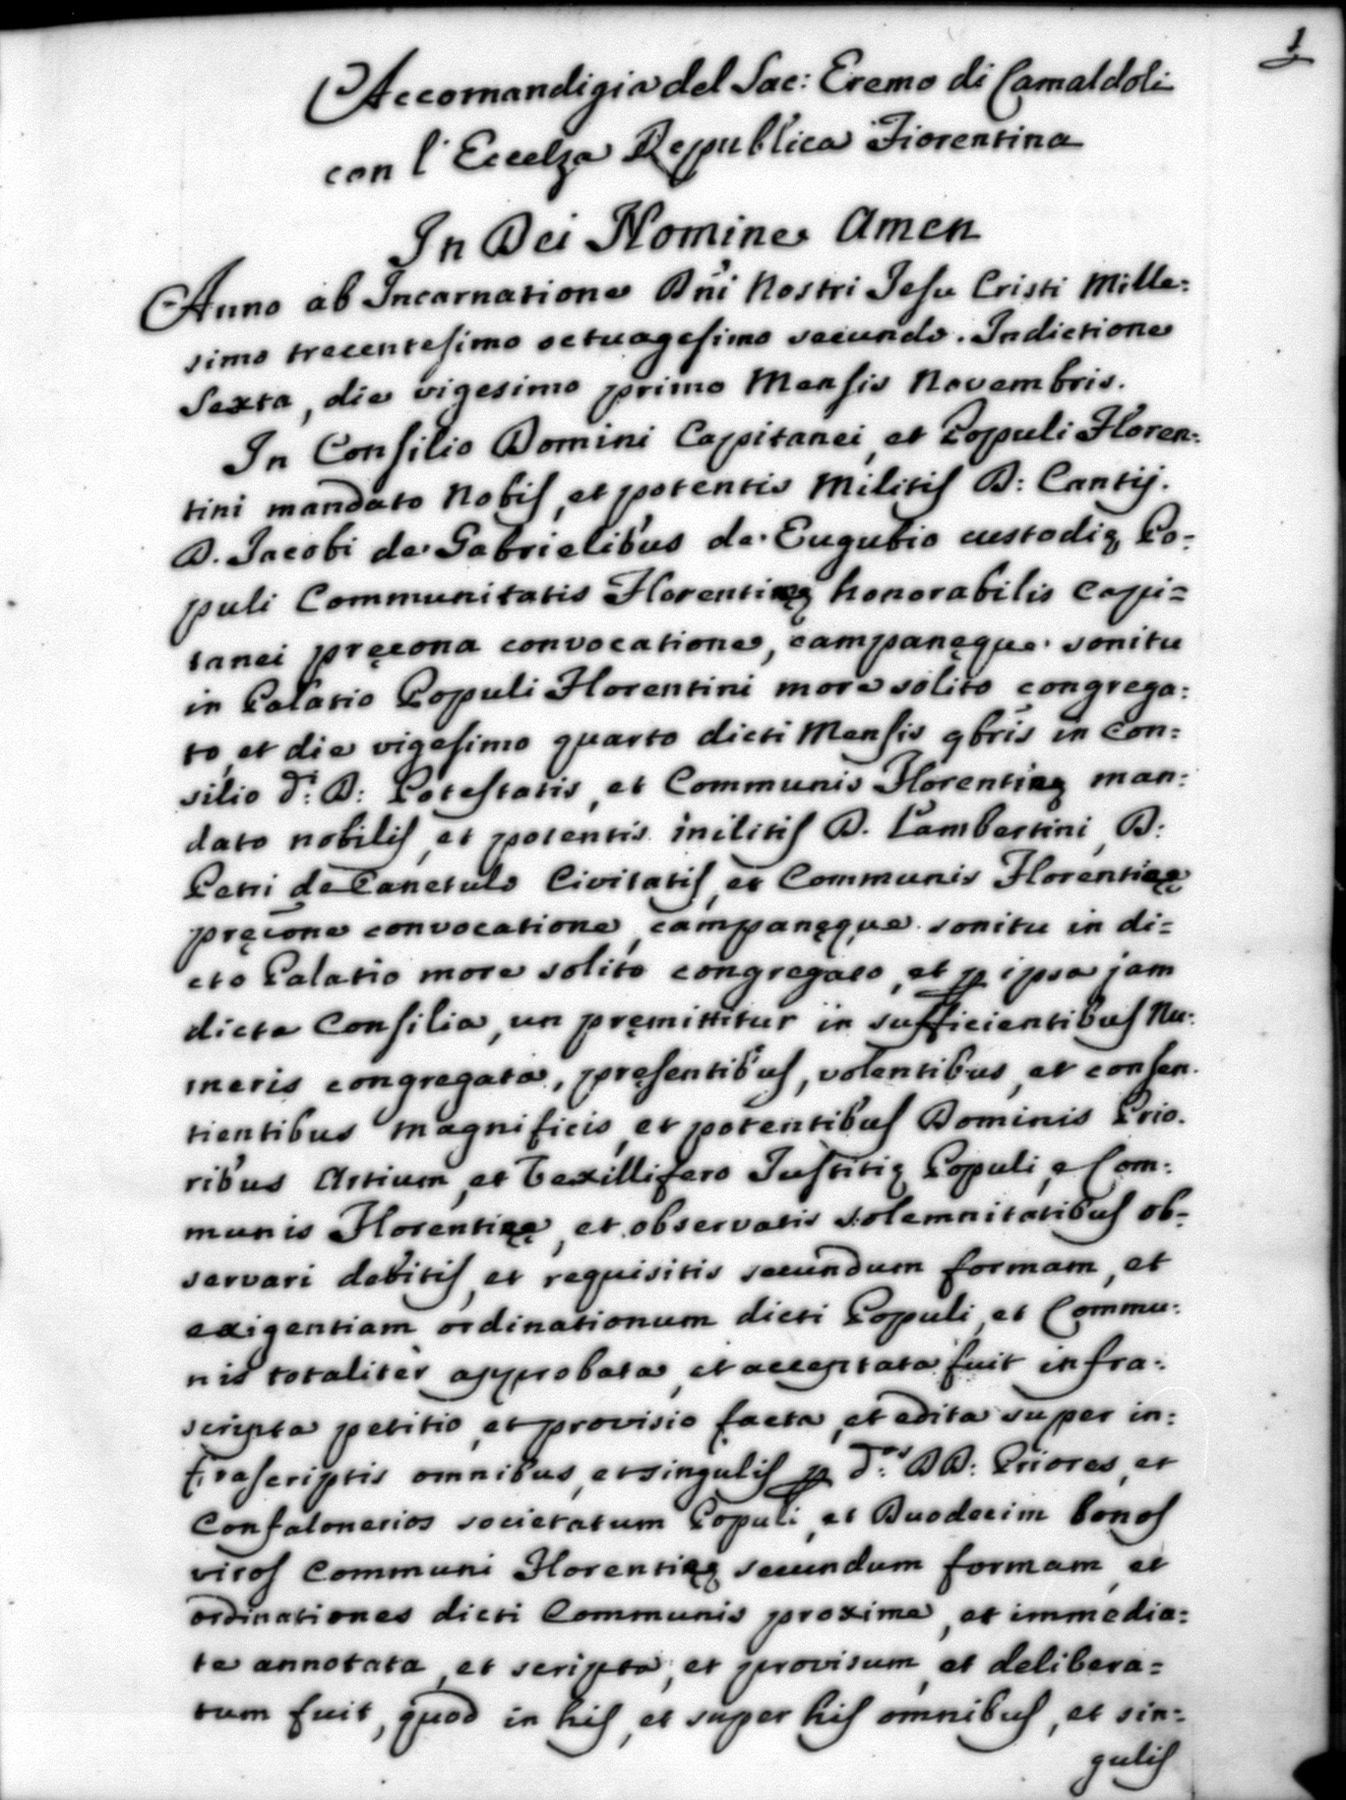 1
Accomandigia del Sac: Eremo di Camaldoli
con l'Eccelza Republica Fiorentina
In Dei Nomine Amen
Anno ab Incarnatione Dn̄i Nostri Jesu Cristi Mille:
simo trecentesimo octuagesimo secundo. Indictione
Sexta, die vigesimo primo Mensis Novembris.
In Consilio Domini Capitanei, et Populi Floren:
tini mandato Nobis, et potentis Militis D: Cantij.
D. Jacobi de Gabrielibus de Eugubio custodię Po:
puli Communitatis Florentię honorabilis Capi=
tanei pręcona convocatione, campanęque sonitu
in Palatio Populi Florentini more solito congrega:
to, et die vigesimo quarto dicti Mensis 9bris in Con:
silio d.i D: Potestatis, et Communis Florentię man:
dato nobilis, et potentis militis D. Lambertini, D:
Petri de Canetulo Civitatis, et Communis Florentię
pręcone convocatione, campanęque sonitu in di=
cto Palatio more solito congregato, et p ipsa jam
dicta Consilia, un pręmittitur in sufficientibus Nu:
meris congregata, pręsentibus, volentibus, et consen:
tientibus magnificis, et potentibus Dominis Prio.
ribus Artium, et Vexillifero Justitię Populi, e Com:
munis Florentię, et observatis solemnitatibus ob=
servari debitis, et requisitis secundum formam, et
exigentiam ordinationum dicti Populi, et Commu:
nis totaliter approbata, et acceptata fuit infra:
scripta petitio, et provisio facta, et edita super in:
frascriptis omnibus, et singulis p d.os DD: Priores, et
Confalonerios societatum Populi, et Duodecim bonos
viros Communi Florentię secundum formam, et
ordinationes dicti Communis proxime, et immedia:
te annotata, et scripta, et provisum, et delibera=
tum fuit, quod in his, et super his omnibus, et sin=
gulis